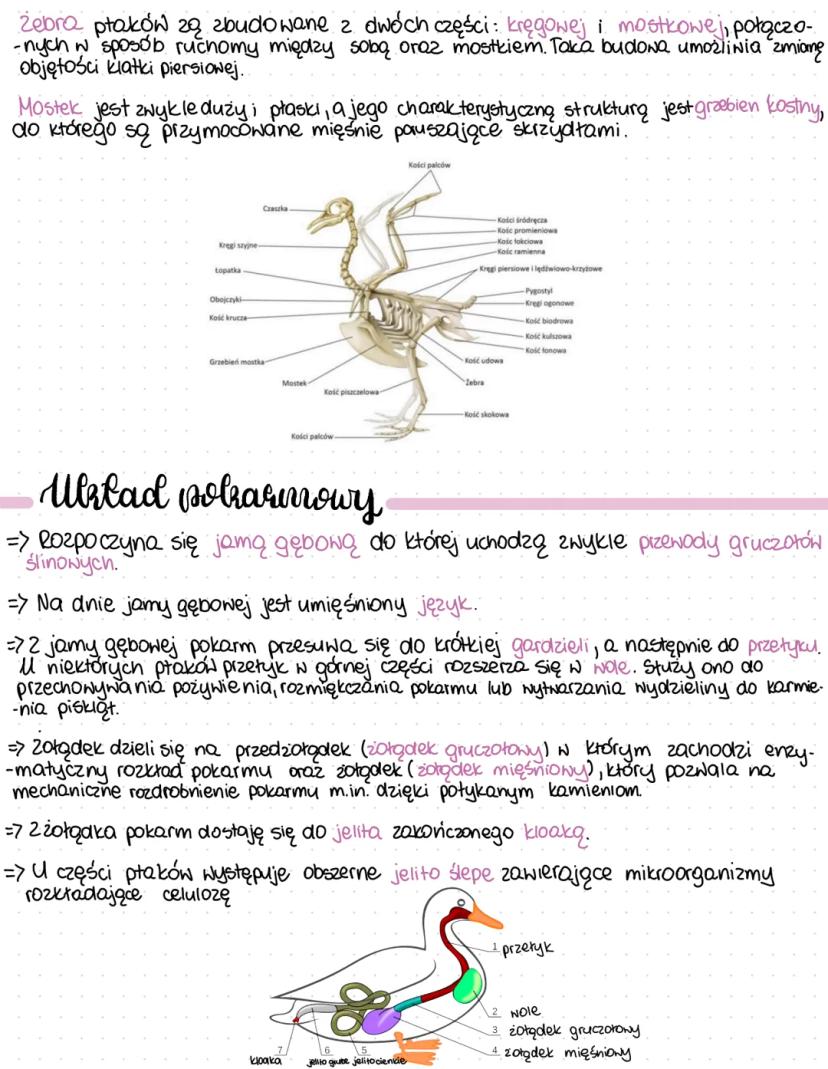 Żebra ptaków są zbudowane z dwóch części: kręgowej i mostkowej, połączo-
-nych w sposób ruchomy między sobą oraz mostkiem. Taka budowa umożliwia zmianę
objętości klatki piersiowej.
Mostek jest zwykle duży i płaski, a jego charakterystyczną strukturą jest grzebien kostny,
do którego są przymocowane mięśnie pouszające skrzydłami.
Kości palców
Czaszka
Kości śródręcza
Kość promieniowa
Kość łokciowa
Kość ramienna
Kręgi szyjne
Łopatka
Kręgi piersiowe i lędźwiowo-krzyżowe
Obojczyki
Pygostyl
Kręgi ogonowe
Kość krucza
Kość biodrowa
Kość kulszowa
Kość łonowa
Grzebień mostka
Kość udowa
Mostek
Żebra
Kość piszczelowa
Kość skokowa
Kości palców
Układ pokarmowy
=> Rozpoczyna się jamą gębową do której uchodzą zwykle przewody gruczołów
ślinowych.
=> Na dnie jamy gębowej jest umięśniony język.
=> Z jamy gębowej pokarm przesuwa się do krótkiej gardzieli, a następnie do przełyku.
U niektórych ptaków przełyk w górnej części rozszerza się w wole. Służy ono do
przechowywania pożywienia, rozmiękczania pokarmu lub wytwarzania wydzieliny do karmie-
-nia piskląt.
=> Żołądek dzieli się na przedżołądek (żołądek gruczołowy) w którym zachodzi enzy-
-matyczny rozkład pokarmu oraz żołądek (żołądek mięśniowy), który pozwala na
mechaniczne rozdrobnienie pokarmu m.in. dzięki połykanym kamieniom.
=> Z żołądka pokarm dostaję się do jelita zakończonego kloaką.
=> U części ptaków występuje obszerne jelito ślepe zawierające mikroorganizmy
rozkładające celulozę
1 przełyk
2 wole
3 żołądek gruczołowy
4 żołądek mięśniowy
7 6 5
kloaka jelito grube jelito cienkie